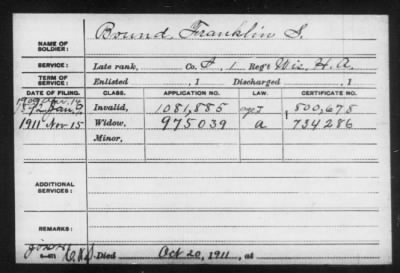 NAME OF SOLDIER: Bound, Franklin S.
SERVICE: Late rank, Co. F, 1 Reg't Wis. H. A.
TERM OF SERVICE: Enlisted , 1 Discharged , 1
DATE OF FILING. CLASS. APPLICATION NO. LAW. CERTIFICATE NO.
Invalid, 1081,885 800,675
1911 Nov 15 Widow, 975039 a 734286
Minor,
ADDITIONAL SERVICES:
REMARKS:
Died Oct 20, 1911, at